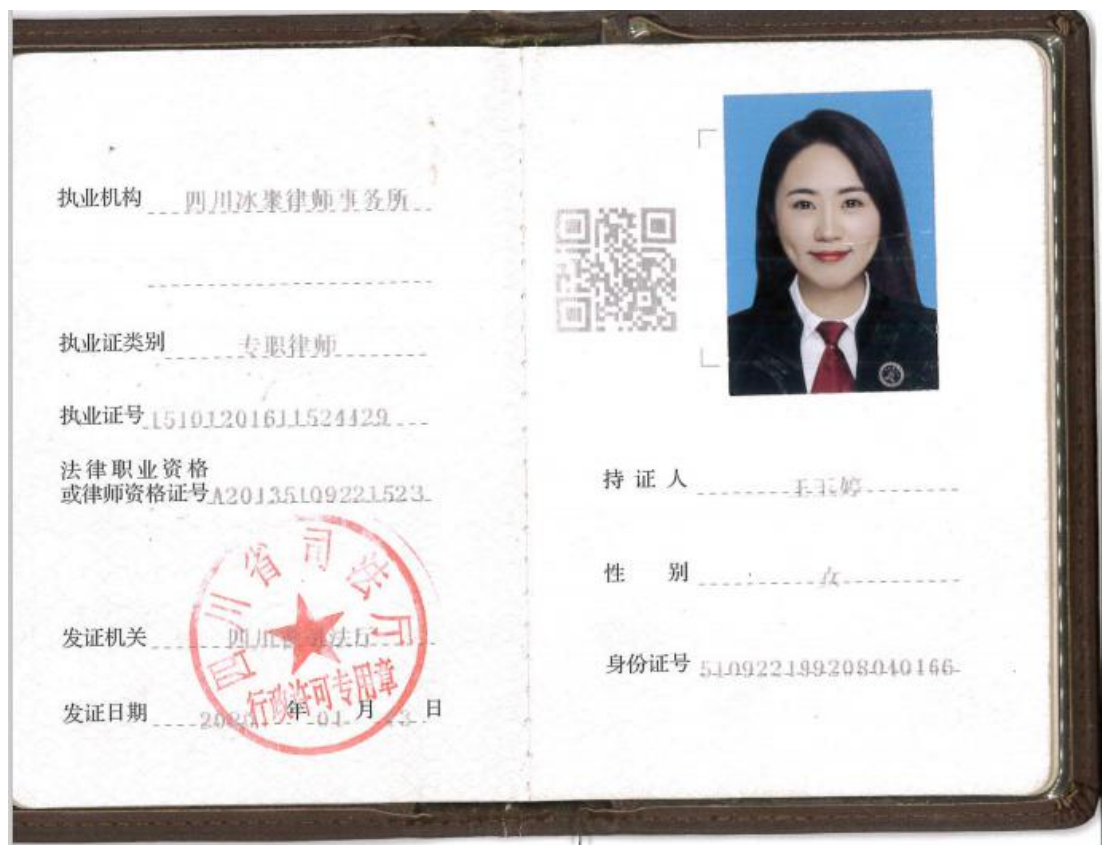 执业机构 四川冰聚律师事务所
执业证类别 专职律师
执业证号 15101201611524429
法律职业资格
或律师资格证号 A20135109221523
发证机关 四川省司法厅
发证日期 年 01 月 日
四川省司法厅
行政许可专用章
持证人
性别 女
身份证号 510922199208040166